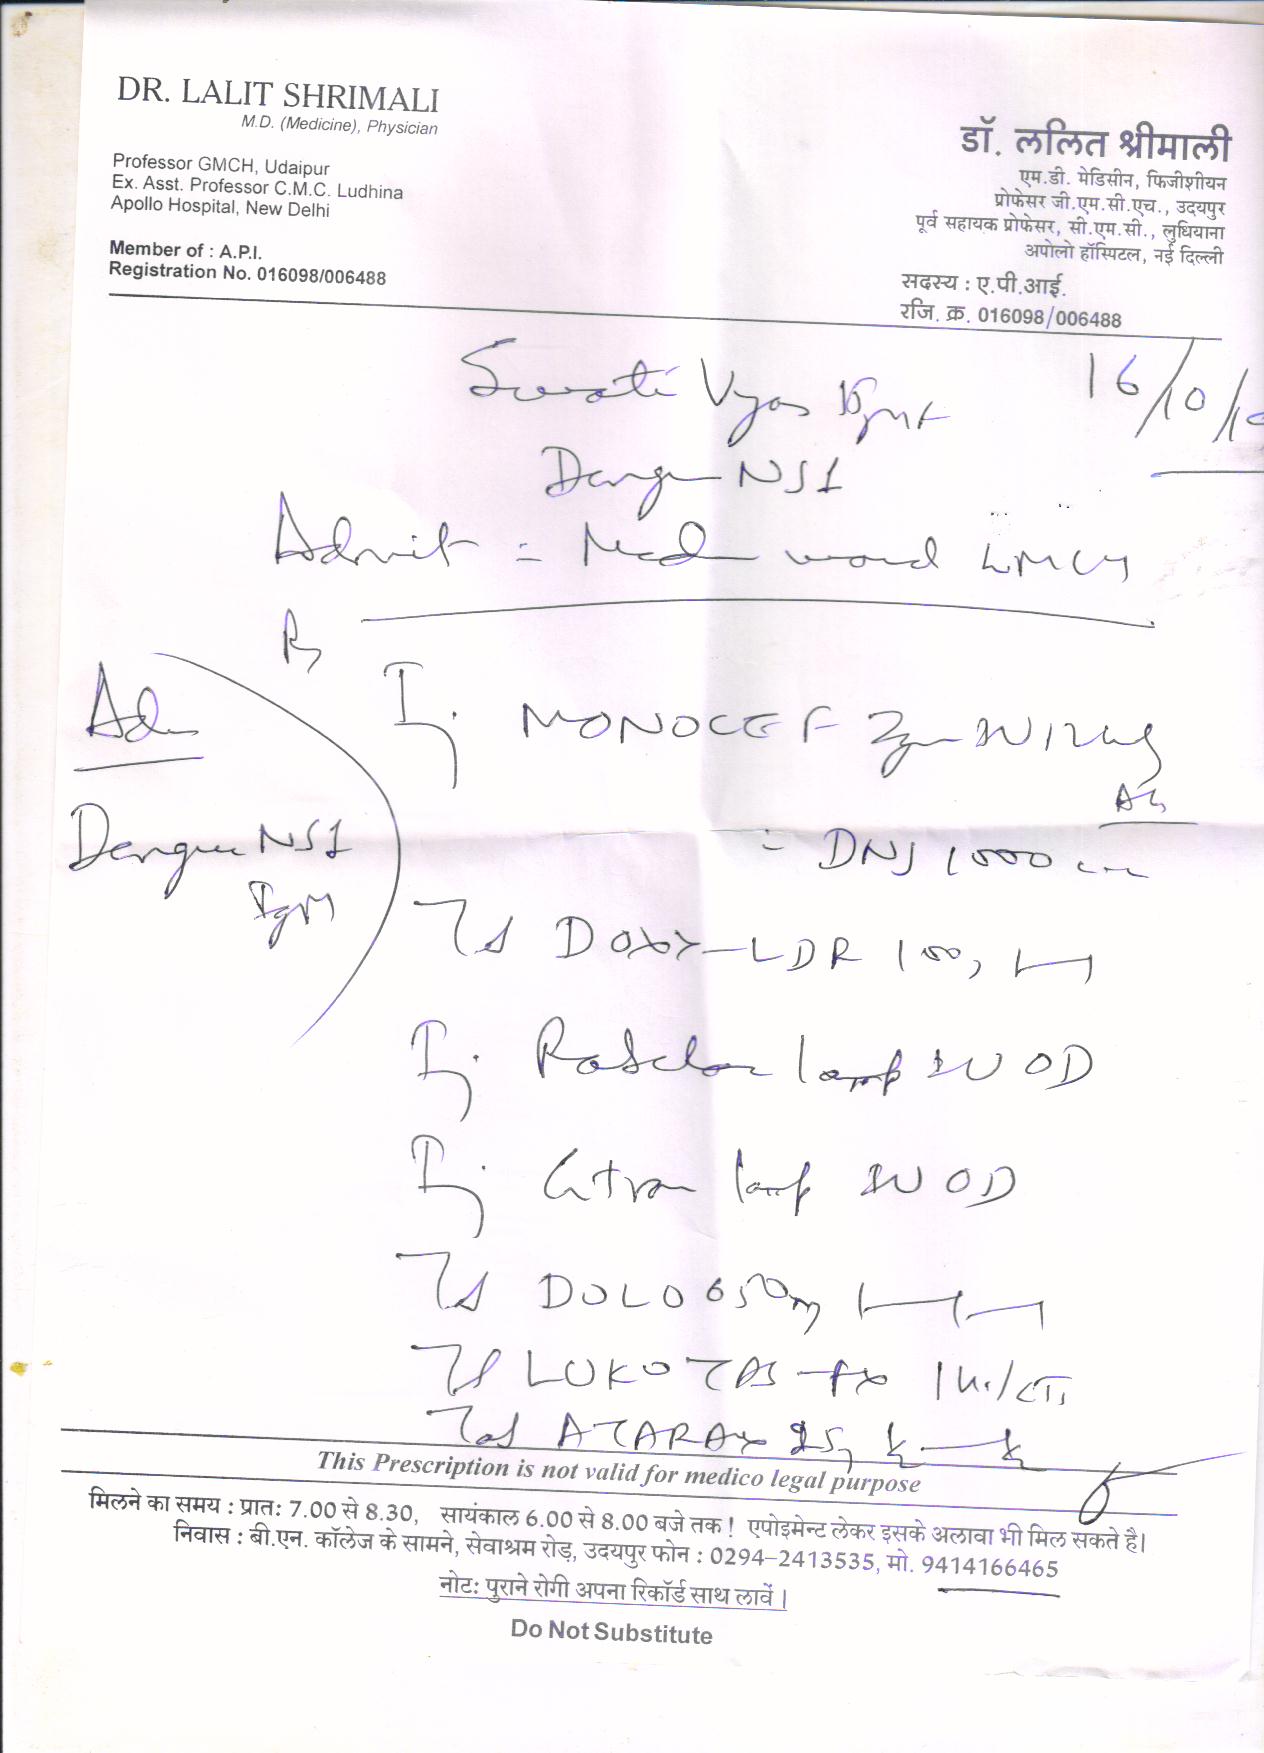 DR. LALIT SHRIMALI
M.D. (Medicine), Physician
Professor GMCH, Udaipur
Ex. Asst. Professor C.M.C. Ludhina
Apollo Hospital, New Delhi
Member of : A.P.I.
Registration No. 016098/006488
डॉ. ललित श्रीमाली
एम.डी. मेडिसीन, फिजीशीयन
प्रोफेसर जी.एम.सी.एच., उदयपुर
पूर्व सहायक प्रोफेसर, सी.एम.सी., लुधियाना
अपोलो हॉस्पिटल, नई दिल्ली
सदस्य : ए.पी.आई.
रजि. क्र. 016098/006488
16/10/
Swati Vyas
Dengue NS1
Admit = ward
Rx
Adv
Dengue NS1
IgM
Inj. MONOCEF 2gm IV 12
= DNS 1000
Tab DOXY-LDR 100,
Inj. 1 amp IV OD
Inj. 1 amp IV OD
Tab DOLO 650mg
Tab LUKOTAS-FX
Tab ATARAX 25,
This Prescription is not valid for medico legal purpose
मिलने का समय : प्रातः 7.00 से 8.30, सायंकाल 6.00 से 8.00 बजे तक ! एपोइमेन्ट लेकर इसके अलावा भी मिल सकते है।
निवास : बी.एन. कॉलेज के सामने, सेवाश्रम रोड़, उदयपुर फोन : 0294-2413535, मो. 9414166465
नोटः पुराने रोगी अपना रिकॉर्ड साथ लावें।
Do Not Substitute